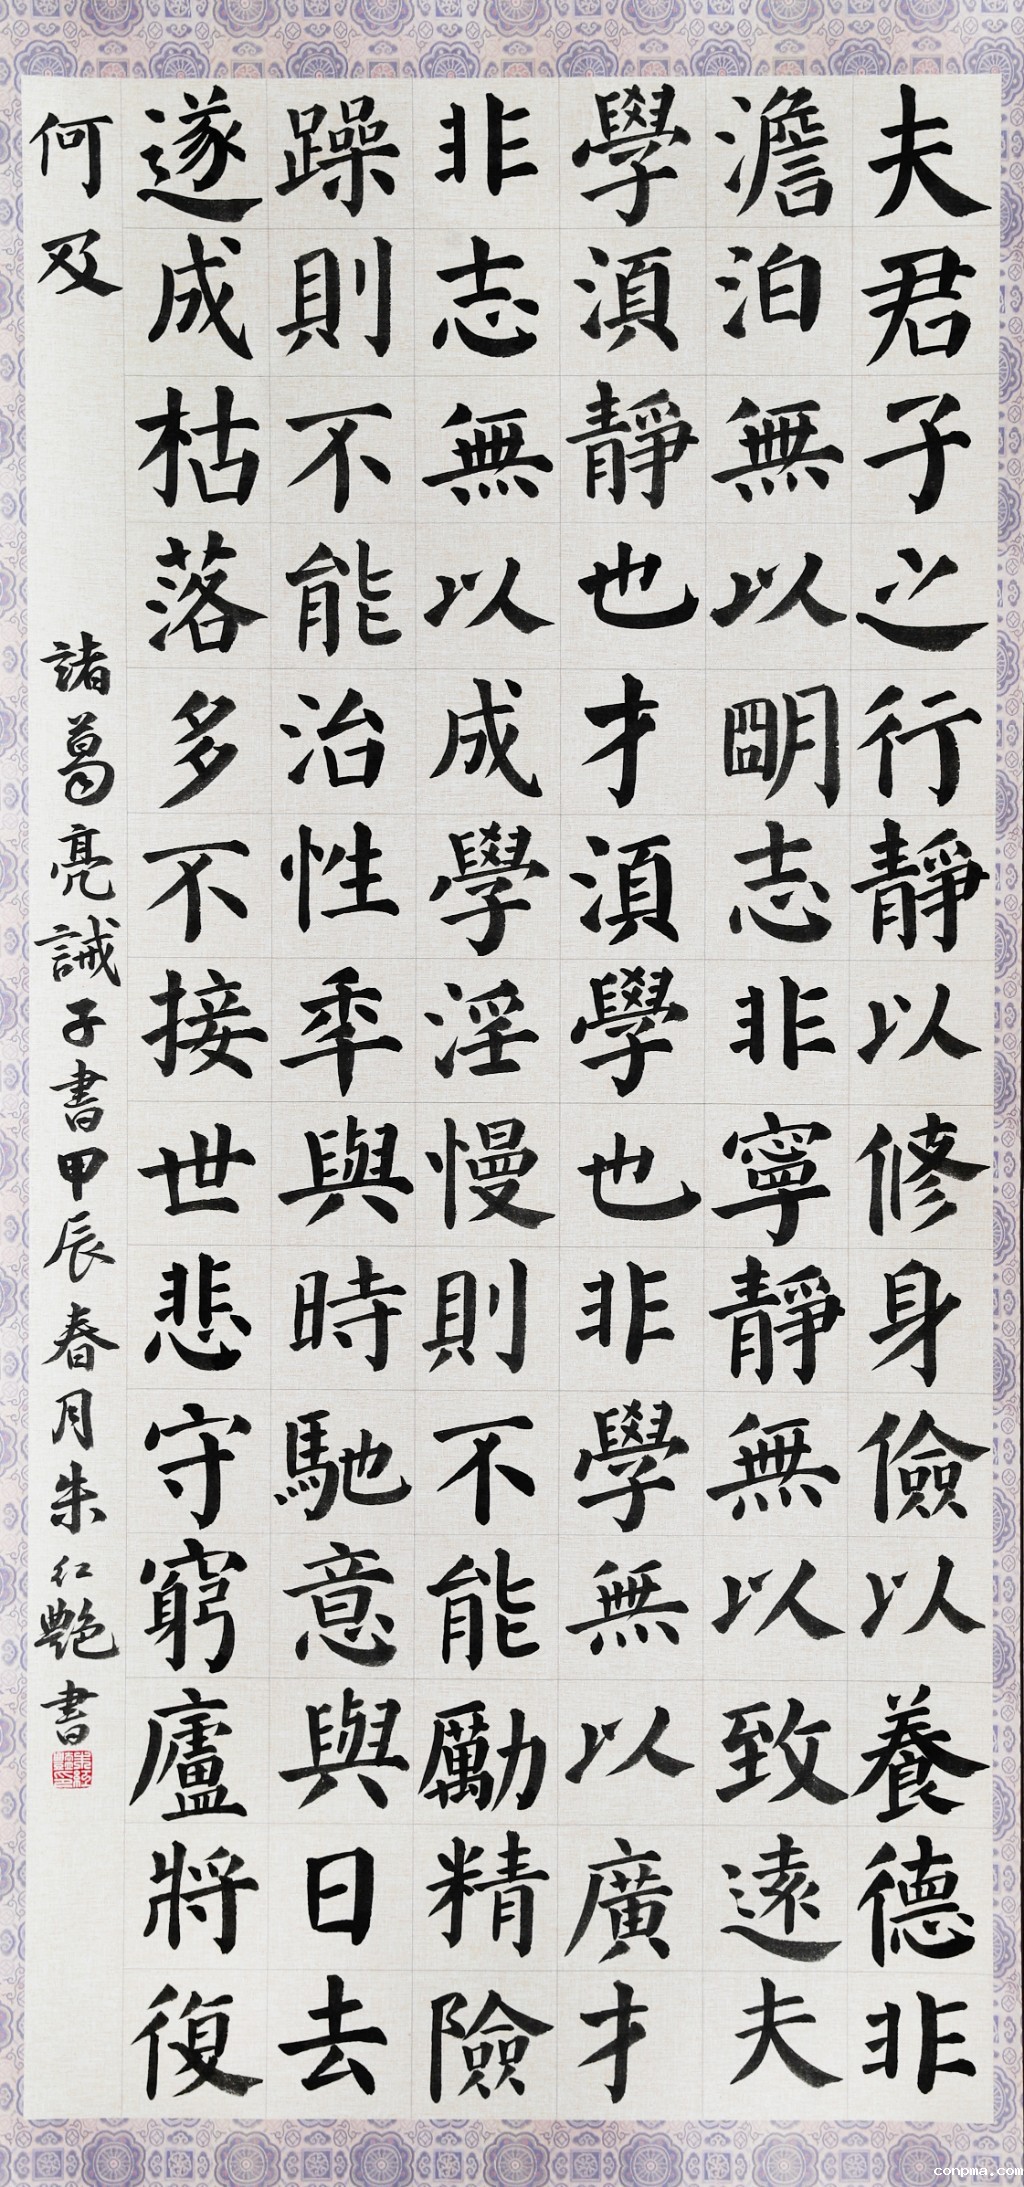 夫君子之行靜以修身儉以養德非
澹泊無以明志非寧靜無以致遠夫
學須靜也才須學也非學無以廣才
非志無以成學淫慢則不能勵精險
躁則不能治性年與時馳意與日去
遂成枯落多不接世悲守窮廬將復
何及
諸葛亮誡子書甲辰春月朱红艷書
conpma.com